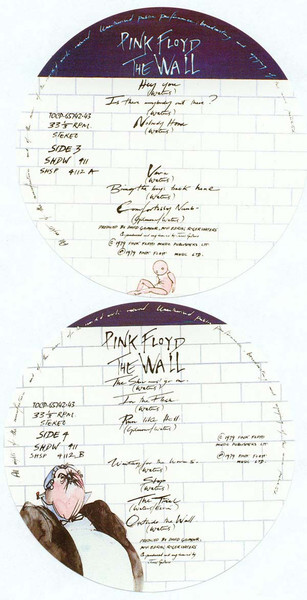 PINK FLOYD
THE WALL
Hey you
(Waters)
Is there anybody out there?
(Waters)
Nobody Home
(Waters)
TOCP-65742·43
33⅓ RPM
STEREO
SIDE 3
SHDW 411
SHSP 4112 A
Vera
(Waters)
Bring the boys back home
(Waters)
Comfortably Numb
(Gilmour/Waters)
PRODUCED BY DAVID GILMOUR,
BOB EZRIN, ROGER WATERS
Co produced and
℗ 1979 PINK FLOYD MUSIC PUBLISHERS LTD.
© 1979 PINK FLOYD MUSIC LTD.
PINK FLOYD
THE WALL
The Show must go on
(Waters)
In the Flesh
(Waters)
Run like Hell
(Gilmour/Waters)
TOCP-65742·43
33⅓ RPM
STEREO
SIDE 4
SHDW 411
SHSP 4112 B
℗ 1979 PINK FLOYD
MUSIC PUBLISHERS LTD.
© 1979 PINK FLOYD
MUSIC LTD.
Waiting for the Worms
(Waters)
Stop
(Waters)
The Trial
(Waters/Ezrin)
Outside the Wall
(Waters)
PRODUCED BY DAVID GILMOUR,
BOB EZRIN, ROGER WATERS
Co produced and